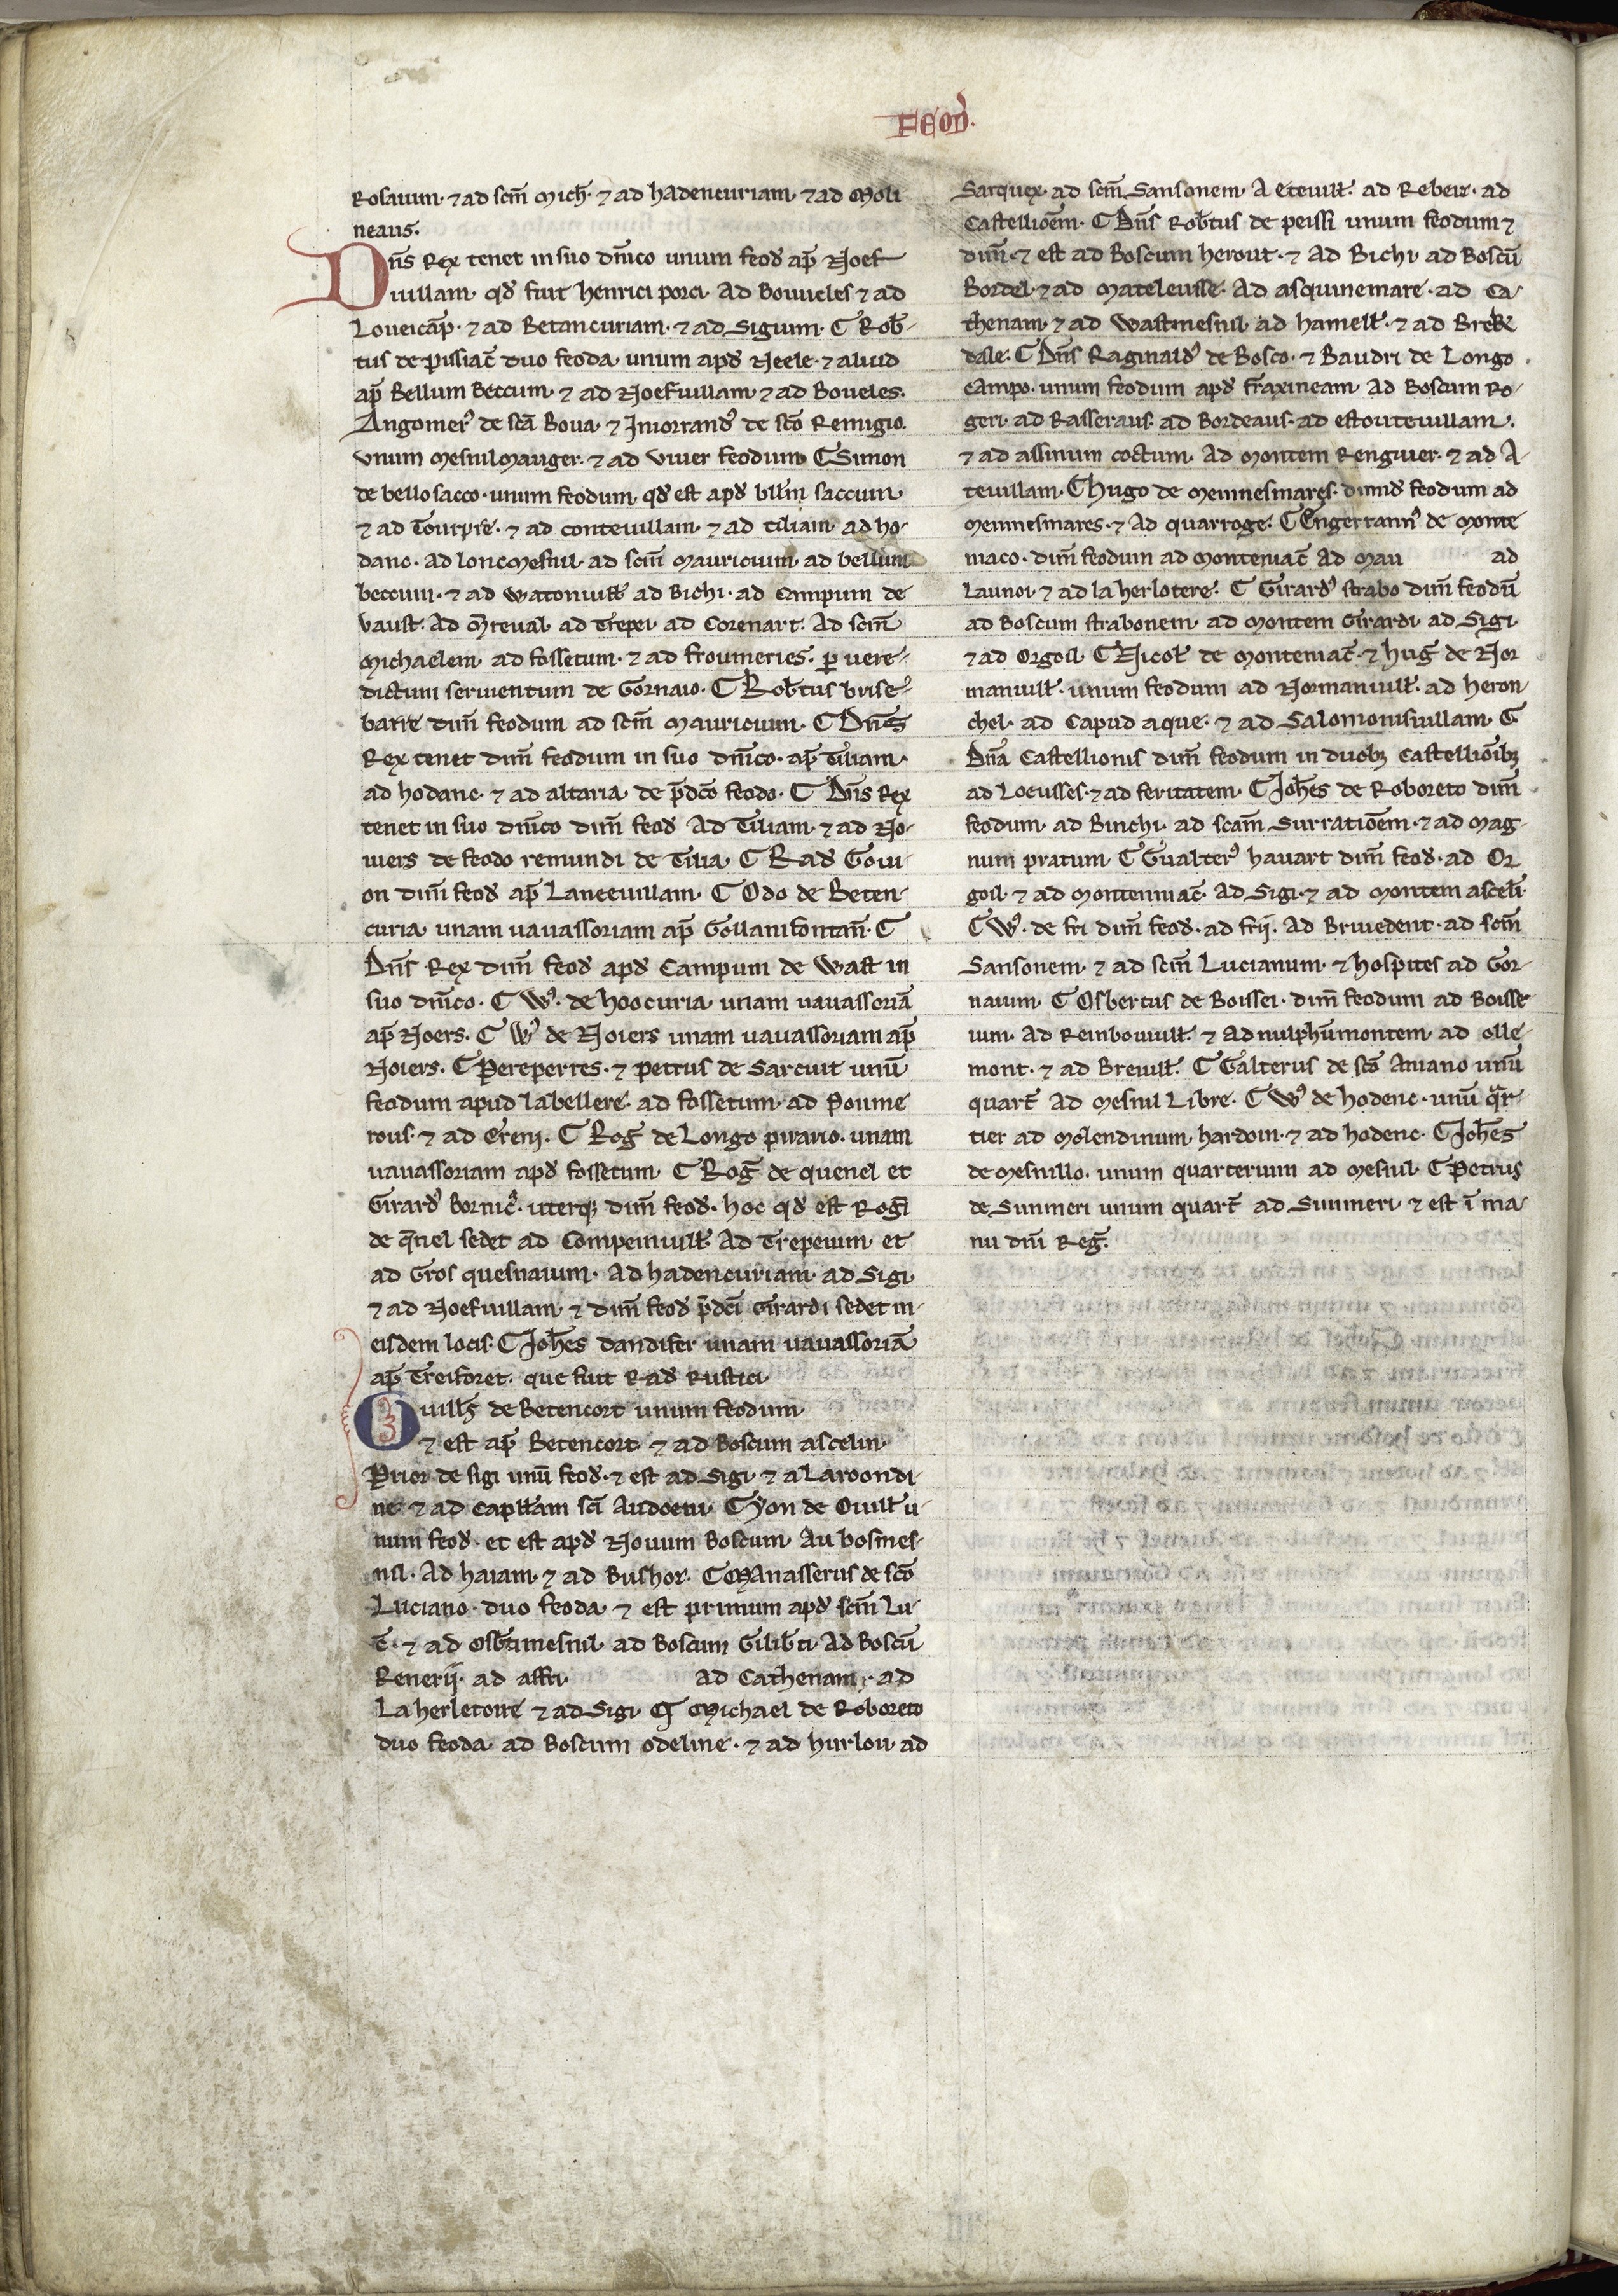 FEOD.
Rosaium. ⁊ ad scm̄ Mich̄. ⁊ ad hadencuriam. ⁊ ad Moli
neaus.
Dn̄s Rex tenet in suo dn̄ico unum feod̄ ap̄ Noef
uillam. qd̄ fuit henrici porci. Ad Bouueles ⁊ ad
Loueicāp. ⁊ ad Betancuriam. ⁊ ad Sigium. C Rob̄-
tus de pissiac̄ duo feoda. unum apd̄ Neele. ⁊ aliud
ap̄ Bellum Beccum. ⁊ ad Noefuillam ⁊ ad Boueles.
Angomer⁹ de scā Boua. ⁊ Iniorrand⁹ de scō Remigio.
Vnum mesnilmauger. ⁊ ad Viuer feodum. C Simon
de bello sacco. unum feodum. qd̄ est apd̄ bll̄m saccum.
⁊ ad Tourpre. ⁊ ad conteuillam. ⁊ ad tiliam. ad ho-
danc. Ad loncmesnil. ad scm̄ Mauricium. ad bellum
beccum. ⁊ ad Watoniuill̄. ad Bichi. ad Campum de
Vaust. Ad Mreual. ad Trepei. ad Corenart. Ad scm̄
Michaelem. ad fossetum. ⁊ ad froumeries. p̱ uere-
dictum seruientum de Gornaio. C Rob̄tus brise-
barre dim̄ feodum ad scm̄ Mauricium. C Dn̄s
Rex tenet dim̄ feodum in suo dn̄ico. ap̄ Tiliam.
ad hodanc. ⁊ ad altaria. de p̄dc̄o feodo. C Dn̄s Rex
tenet in suo dn̄ico dim̄ feod̄. Ad Tiliam. ⁊ ad No-
uiers de feodo remundi de Tilia. C Rad̄ Goui-
on dim̄ feod̄ ap̄ Laneeuillam. C Odo de Beten-
curia. unam uauassoriam ap̄ Gollanifontan̄. C
Dn̄s Rex dim̄ feod̄ apd̄ Campum de Wast in
suo dn̄ico. C W⁹. de hoocuria unam uauassoriā
ap̄ Noers. C W⁹ de Noiers unam uauassoriam ap̄
Noiers. C Pereperres. ⁊ petrus de Sarcuit unū
feodum apud labellere. ad fossetum. ad Poume
rous. ⁊ ad Ereni. C Roḡ de Longo pirario. unam
uauassoriam apd̄ fossetum. C Roḡ de quenel et
Girard⁹ bornic̄. uterq; dim̄ feod̄. hoc qd̄ est Roḡi
de q̄nel sedet ad Compeinuill̄. Ad Trepeium. et
ad Gros quesnaium. Ad hadencuriam. ad Sigi.
⁊ ad Noefuillam. ⁊ dim̄ feod̄ p̄dc̄i Girardi sedet in
eisdem locis. C Joh̄es dandifer unam uauassoriā
ap̄ Treiforet. que fuit Rad̄ Rustici.
Guill̄s de Betencort unum feodum
⁊ est ap̄ Betencort. ⁊ ad Boscum ascelin.
Prior de sigi unū feod̄. ⁊ est ad Sigi. ⁊ a Laroondi-
ne. ⁊ ad Capll̄am sci Audoeni. C Yon de Ouill̄ u-
num feod̄. et est apd̄ Nouum Boscum. Au bosmes-
nil. Ad haiam. ⁊ ad Bushor. C Manasserus de scō
Luciano. duo feoda. ⁊ est primum apd̄ scm̄ Lu-
c̄. ⁊ ad Osb̄timesnil. ad Boscum Gilib̄ti. Ad Boscū
Renerij. ad affri. ad Cathenam. ad
La herletoire ⁊ ad Sigi. C Michael de Roboreto
duo feoda. ad Boscum odeline. ⁊ ad hurlou. ad
Sarquex. ad scm̄ Sansonem. A eteuill̄. ad Rebeiz. ad
Castellioēm. C Dn̄s Rob̄tus de peissi unum feodum ⁊
dim̄. ⁊ est ad Boscum herout. ⁊ Ad Bichi. ad Boscū
Bordel. ⁊ ad Mateleusse. Ad asquinemare. ad Ca-
thenam. ⁊ ad Wastmesnil. ad hamell̄. ⁊ ad Breke
dale. C Dn̄s Raginald⁹ de Bosco. ⁊ Baudri de Longo
campo. unum feodum apd̄ fraxineam. Ad Boscum Ro-
geri. ad Rasseraus. ad Bordeaus. ad estouteuillam.
⁊ ad assinum coctum. Ad montem Renguier. ⁊ ad A-
teuillam. C hugo de Meinnesmares. dimid̄ feodum ad
Meinnesmares. ⁊ Ad quarroge. C Engerrann⁹ de Monte
maco. dim̄ feodum ad Montemac̄. Ad Mau ad
Launoi. ⁊ ad la herlotere. C Girard⁹ strabo dim̄ feodū
ad Boscum strabonem. ad montem Girardi. ad Sigi.
⁊ ad Orgoil. C Nicol̄ de Montemac̄. ⁊ huḡ de Nor
manuill̄. unum feodum ad Normanuill̄. ad heron
chel. ad Capud aque. ⁊ ad Salomonisuillam. C
Dn̄a Castellionis dim̄ feodum in duob; Castellioīb;
ad Locusses. ⁊ ad feritatem. C Joh̄es de Roboreto dim̄
feodum. ad Binchi. ad scam̄ Surratioēm. ⁊ ad Mag-
num pratum. C Gualter⁹ hauart dim̄ feod̄. ad Or
goil. ⁊ ad Montenniac̄. Ad Sigi. ⁊ ad montem ascel̄i.
C W⁹. de fri dim̄ feod̄. ad frij. Ad Briuedent. ad scm̄
Sansonem. ⁊ ad scm̄ Lucianum. ⁊ hospites ad Gor-
naium. C Osbertus de Boissei. dim̄ feodum ad Boisse
ium. Ad Reinbouuill̄. ⁊ Ad nulphūmontem. ad olle-
mont. ⁊ ad Breuill̄. C Galterus de scō Aniano unū
quart̄. Ad Mesnil Libre. C W⁹ de hodenc. unū qr̄-
tier ad Molendinum hardoin. ⁊ ad hodenc. C Joh̄es
de Mesnillo. unum quarterium ad Mesnil. C Petrus
de Summeri unum quart̄. ad Summeri. ⁊ est ī ma-
nu dn̄i Reḡ.